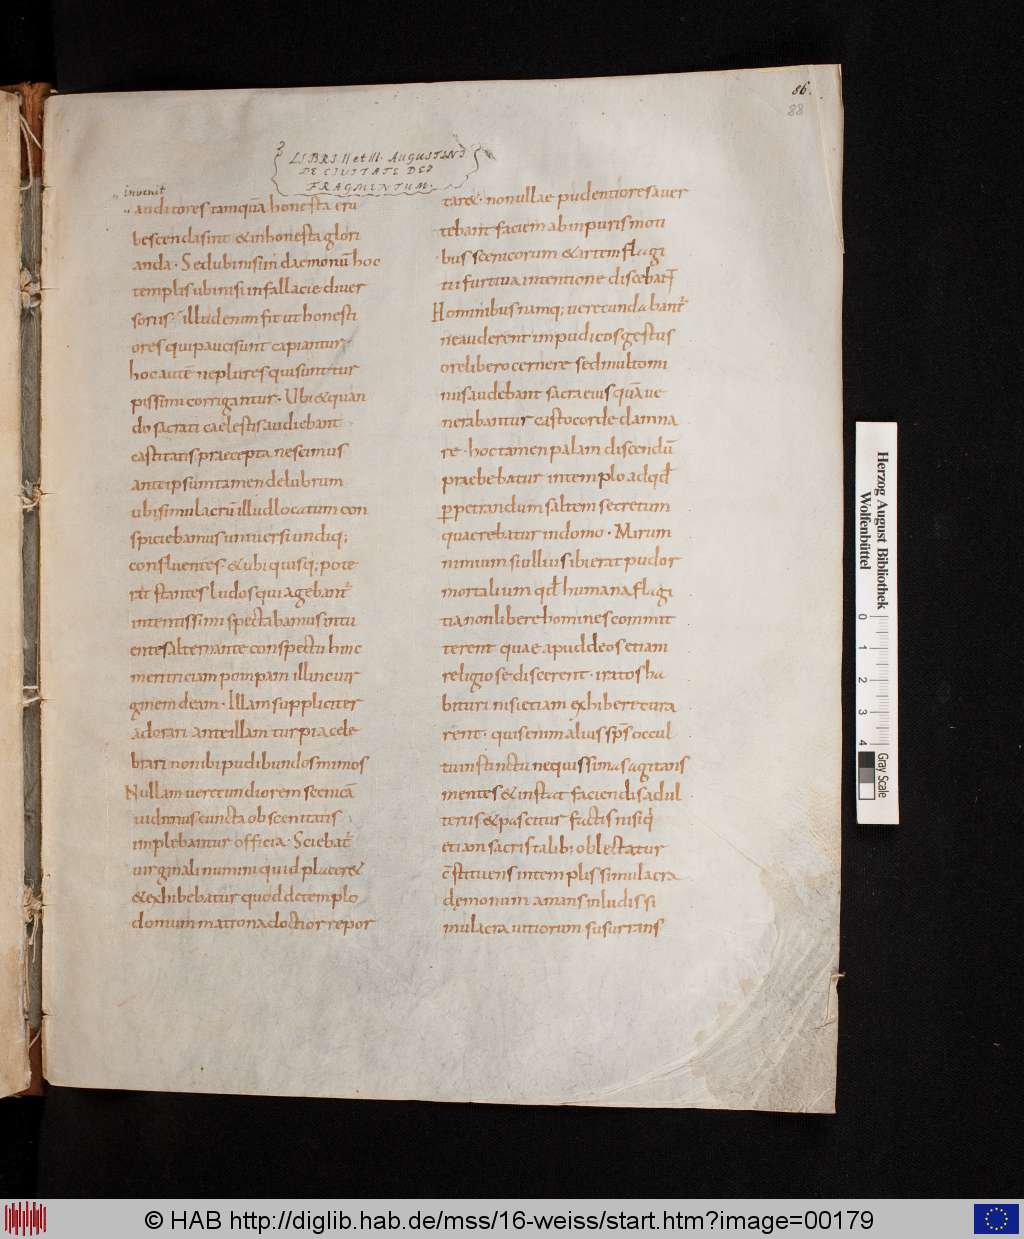 86.
88
LIBRI II et III. AUGUSTINI
DE CIVITATE DEI
FRAGMENTUM.
invenit
auditores tamquā honesta eru
bescenda sint & inhonesta glori
anda · Sed ubi nisi in daemonū hoc
templis ubi nisi in fallacie diver
soriis · illud enim fit ut honesti
ores qui pauci sunt capiantur ·
hoc autē ne plures qui sunt tur
pissimi corrigantur · Ubi & quan
do sacrati caelestis audiebant
castitatis praecepta nescimus
ante ipsum tamen delubrum
ubi simulacrū illud locatum con
spiciebamus universi undiq;
confluentes · & ubi quisq; pote
rat stantes ludos qui agebant̄
intentissimi spectabamus intu
entes alternante conspectu hinc
meritriciam pompam illinc vir
ginem deam · Illam suppliciter
adorari ante illam turpia cele
brari non ibi pudibundos mimos
Nullam verecundiorem scenicā
vidimus cuncta obscenitatis
implebantur officia · Sciebat̄
virginali numini quid placer&
& exhibebatur quod de templo
domum matrona doctior repor
tar& · nonnullae pudentiores aver
tebant faciem ab inpuris moti
bus scenicorum & artem flagi
tii furtiva intentione discebant̄
Hominibus namq; verecundabant̄
ne auderent impudicos gestus
ore libero cernere sed multo mi
nus audebant sacra eius quā ve
nerabantur casto corde damna
re · hoc tamen palam discendū
praebebatur in templo ad qđ
ꝑpetrandum saltem secretum
quaerebatur in domo · Mirum
nimium si ullus ibi erat pudor
mortalium qđ humana flagi
tia non libere homines commit
terent quae apud deos etiam
religiose discerent · iratos ha
bituri nisi etiam exhibere cura
rent · quis enim alius sp̄s occul
tu instinctu nequissimas agitans
mentes & instat faciendis adul
teriis & pascitur factis nisi q̇
etiam sacris talib; oblectatur
c̄stituens in templis simulacra
dęmonum amans in ludis si
mulacra vitiorum susurrans
Herzog August Bibliothek
Wolfenbüttel
0 1 2 3 4
Gray Scale
© HAB http://diglib.hab.de/mss/16-weiss/start.htm?image=00179